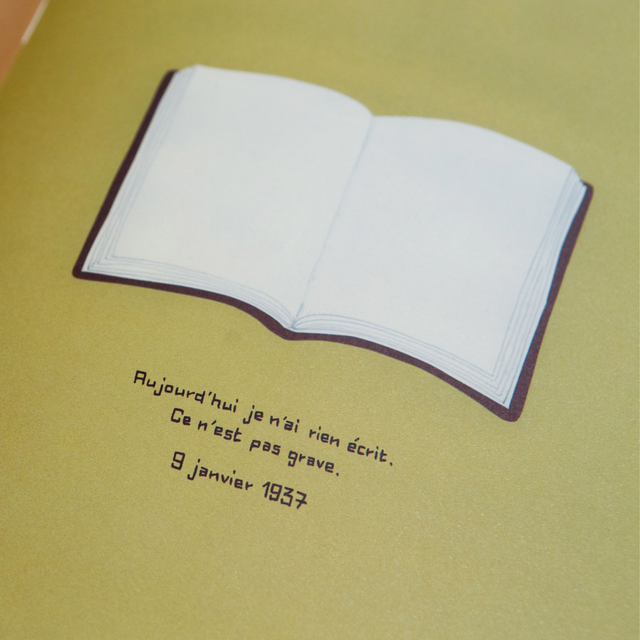 Aujourd'hui je n'ai rien écrit.
Ce n'est pas grave.
9 janvier 1937